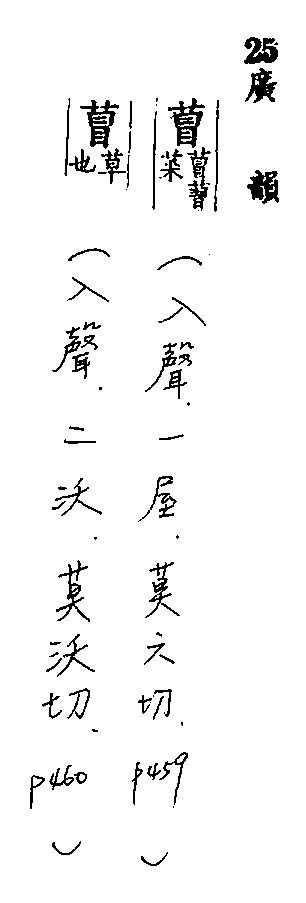 25 廣韻
萺 萺 菜 (入聲.一屋.莫六切.p459)
萺 草也 (入聲.二沃.莫沃切.p460)